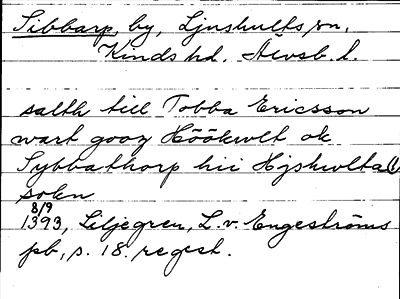 Sibbarp, by, Ljushults sn.
Kinds hd. Älvsb. l.
salth till Tobba Ericsson
wart gooz Höökwlt ok
Sybbathorp hii Hjskwlta
sokn
8/9
1393, Liljegren, L. v. Engeströms
pb, s. 18. regest.